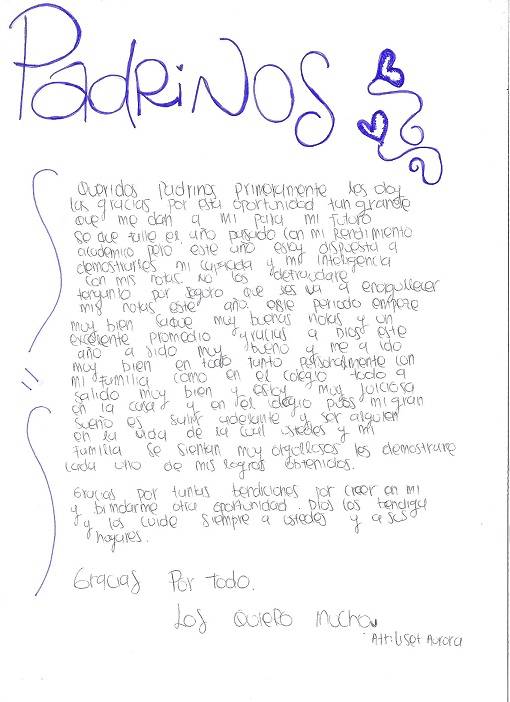 PadRiNOS
Queridos Padrinos primeramente les doy
las gracias por esta oportunidad tan grande
que me dan a mi para mi futuro
se que falle el año pasado con mi rendimiento
academico pero este año estoy dispuesta a
demostrarles mi capacidad y mi inteligencia
con mis notas. No los defraudare
tenganlo por seguro que les va a enorgullecer
mis notas este año. este periodo empeze
muy bien saque muy buenas notas y un
excelente promedio gracias a Dios este
año a sido muy bueno y me a ido
muy bien en todo tanto personalmente con
mi familia como en el colegio todo a
salido muy bien y estoy muy juiciosa
en la casa y en el colegio pues mi gran
sueño es salir adelante y ser alguien
en la vida de la cual ustedes y mi
familia se sientan muy orgullosos les demostrare
cada uno de mis logros obtenidos.
Gracias por tantas bendiciones por creer en mi
y brindarme otra oportunidad. Dios los bendiga
y los cuide siempre a ustedes y a sus
hogares.
Gracias Por todo.
Los quiero mucho